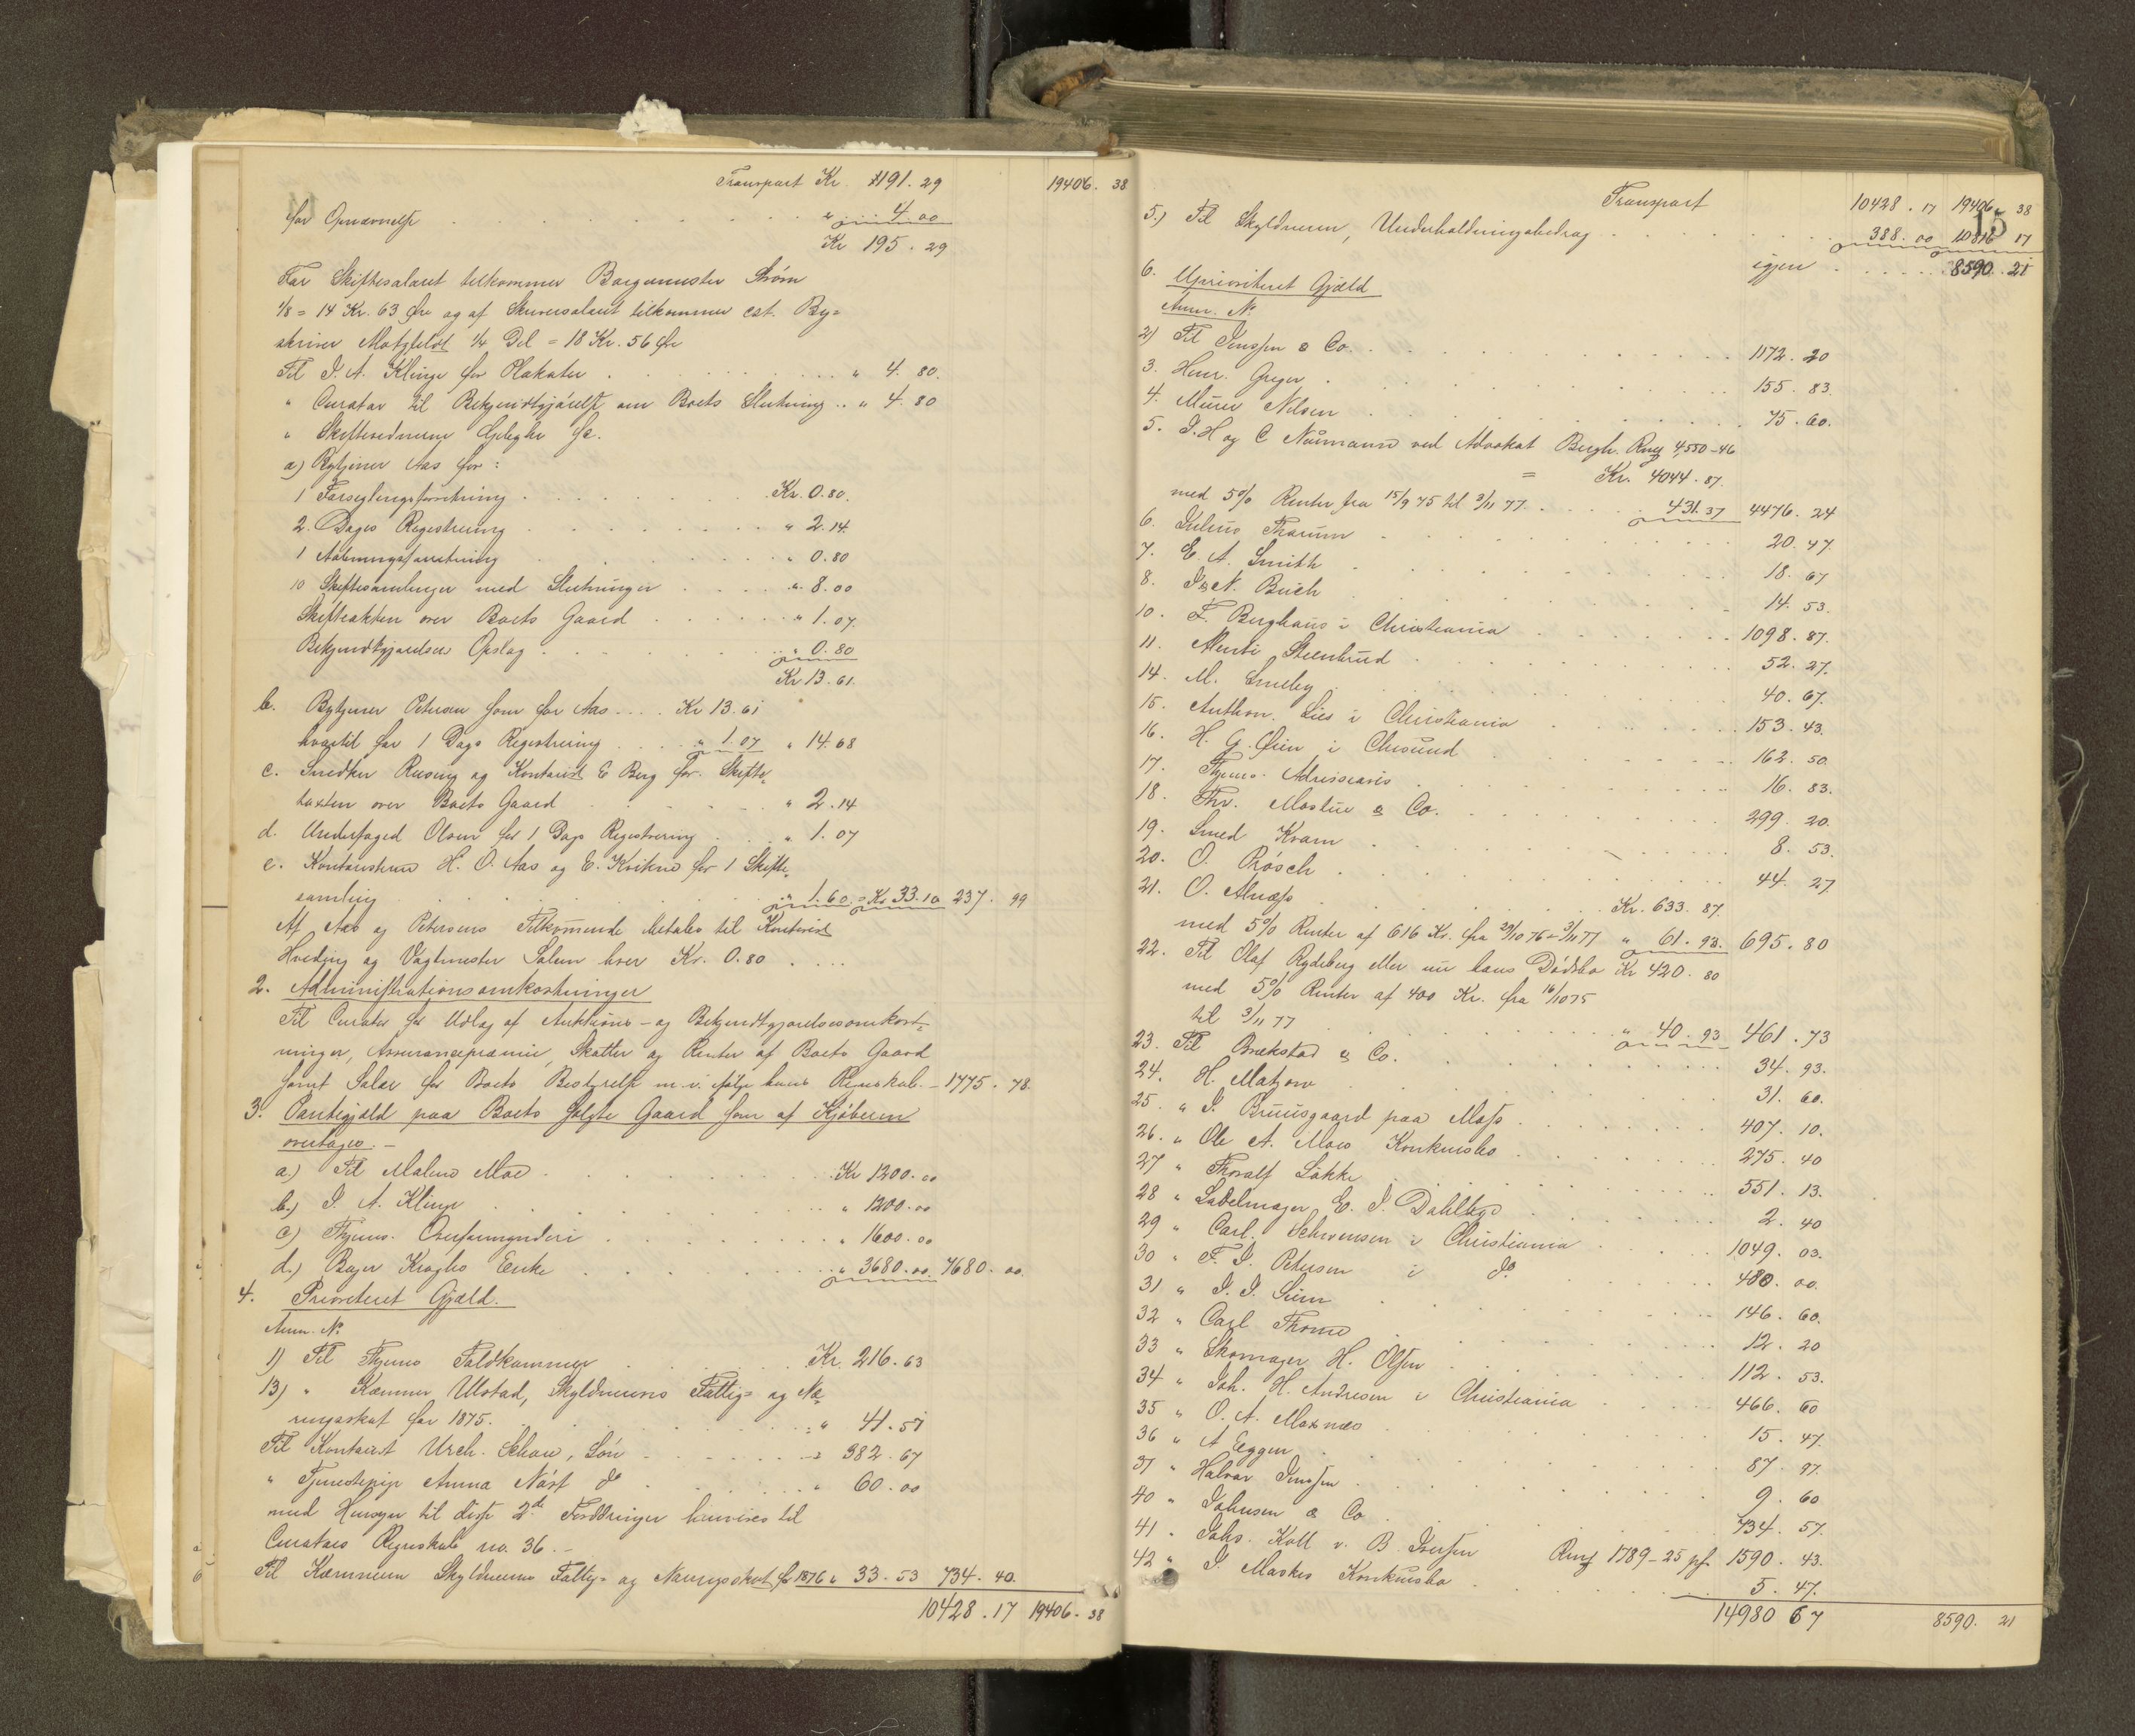 Transport Kr. 191. 29 19406. 38
for Opnævnelse " 4. 00
Kr 195. 29
Før Skiftesalaret tilkommer Borgermester Strøm
1/8 = 14 Kr. 63 Øre og af Skriversalaret tilkommer cst. By=
skriver Motzfeldt 1/4 Del = 18 Kr. 56 Øre
Til I. A. Klinge for Plakater " 4. 80.
" Curator til Bekjendtgjørelse om Boets Slutning .. " 4. 80
" Skiftevidnerne
a) Bytjener Aas for:
1 Forseglingsforretning Kr. 0. 80.
2 Dages Registrering " 2. 14.
1 Aabningsforretning " 0. 80
10 Skiftesamlinger med Slutninger " 8. 00
Skiftetakten over Boets Gaard " 1. 07.
Bekjendtgjørelsers Opslag " 0. 80
Kr 13. 61.
b. Bytjener Petersen som for Aas Kr 13. 61
hvortil for 1 Dags Registrering " 1. 07 " 14. 68
c. Snedker Rusing og Kontorist E Berg for Skifte=
taxten over Boets Gaard " 2. 14
d. Underfoged Olsen for 1 Dags Registrering " 1. 07
e. Kontoristerne H. O. Aas og E. Kvikne for 1 Skifte=
samling " 1. 60 = Kr 33. 10 237. 99
Af Aas og Petersens Tilkommende betales til Kontorist
Hveding og Vagtmester Solem hver Kr. 0. 80
2. Administrationsomkostninger
Til Curator for Udlæg af Auktions- og Bekjendtgjørelsesomkost=
ninger, Assurancepræmie, Skatter og Renter af Boets Gaard
samt Salær for Boets Bestyrelse m. v. ifølge hans Regnskab. - 1775. 78.
3. Pantegjæld paa Boets solgte Gaard som af Kjøberen
overtages. -
a.) Til Malene Moe Kr 1200. 00
b.) I. A. Klinge " 1200. 00
c) Thjems. Overformynderi " 1600. 00
d.) Bager Kroghs Enke " 3680. 00. 7680. 00.
4. Prioriteret Gjæld.
Anm. No.
1) Til Thjems Toldkammer Kr. 216. 63
13) " Kæmner Ulstad, Skyldnerens Fattig= og Næ=
ringsskat for 1875. " 41. 57
Til Kontorist Urch. Schou, Løn " 382. 67
" Tjenestepige Anna Næss do " 60. 00
med Hensyn til disse 2de Fordringer henvises til
Curators Regnskab no. 36. -
Til Kæmneren Skyldnerens Fattig= og Næringsskat for 1876 " 33. 53 734. 40.
10428. 17 19406. 38
15
Transport 10428. 17 19406. 38
5.) Til Skyldneren, Underholdningsbidrag 388. 00 10816 17
igjen 8590. 21
6. Uprioriteret Gjæld
Anm. No.
2) Til Jenssen & Co. 1172. 20
3. Henr. Greger 155. 83.
4. Murer Nilsen 75. 60.
5. I. H og C Naumann ved Advokat Bergh. Rmf 4,550-46
= Kr. 4044. 87.
med 5% Renter fra 15/9 75 til 3/11 77. 431. 37 4476. 24
6. Julius Thorum 20. 47.
7. E. A. Smith 18. 67
8. I & N. Buch 14. 53.
10. F. Berghaus i Christiania 1098. 87.
11. Menti Steenbrud 52. 27.
14. M. Smeby 40. 67.
15. Anthon. Lies i Christiania 153. 43.
16. H. G. Øien i Chrsund 162. 50.
17. Thjems. Adresseavis 16. 83.
18. Thr. Mostue & Co. 299. 20.
19. Smed Kvam 8. 53.
20. O. Rösch 44. 27.
21. O. Alnæss Kr. 633. 87.
med 5% Renter af 616 Kr. fra 29/10 76 - 3/11 77 " 61. 93. 695. 80
22. Til Olaf Rydsberg eller nu hans Dødsbo Kr 420. 80
med 5% Renter af 400 Kr. fra 16/10 75
til 3/11 77 " 40. 93 461. 73
23. Til Brækstad & Co. 34. 93.
24. H. Matzow 31. 60.
25. " I. Bruusgaard paa Moss 407. 10.
26. " Ole A. Moes Konkursbo 275. 40
27 " Thoralf Løkke 551. 13.
28 " Sadelmager E. I. Dahlbye 2. 40
29 " Carl. Schwensen i Christiania 1049. 03.
30 " F. I. Petersen i do 480. 00.
31 " I. I. Siem 146. 60.
32 " Carl Thome 12. 20
33 " Skomager H. Olsen 112. 53.
34 " Joh. H. Andresen i Christiania 466. 60
35 " O. A. Moxnæs 15. 47.
36 " A Eggen 87. 97.
37 " Halvor Jenssen 9. 60
40 " Johnsen & Co 734. 57.
41 " Johs. Koll v. B. Iversen Rmf 1789-25 pf. 1590. 43.
42 " I. Maskes Konkursbo 5. 47.
14980 67 8590. 21